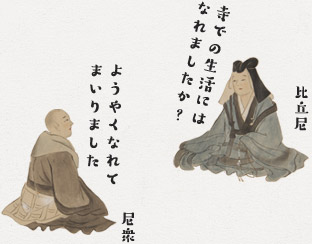 寺での生活には
なれましたか？
比丘尼
ようやくなれて
まいりました
尼衆